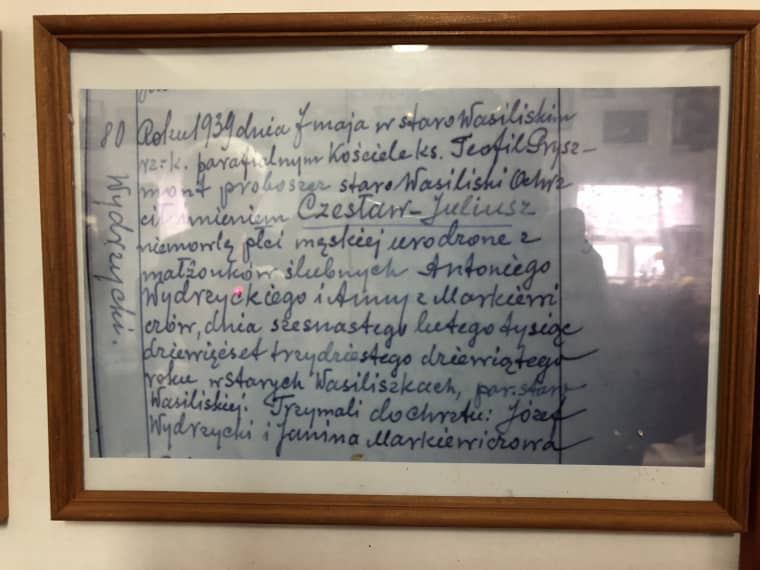 80
Wydrzycki.
Roku 1939 dnia 7 maja w staro Wasiliskim
rz:-k. parafialnym Kościele ks. Teofil Prysz-
mont proboszcz staro Wasiliski Ochrz
cił imieniem Czesław-Juliusz
niemowlę płci męskiej urodzone z
małżonków ślubnych Antoniego
Wydrzyckiego i Anny z Markiewi
czów, dnia szesnastego lutego tysiąc
dziewięćset trzydziestego dziewiątego
roku w Starych Wasiliszkach, par. staro
Wasiliskiej. Trzymali do chrztu: Józef
Wydrzycki i Janina Markiewiczowa